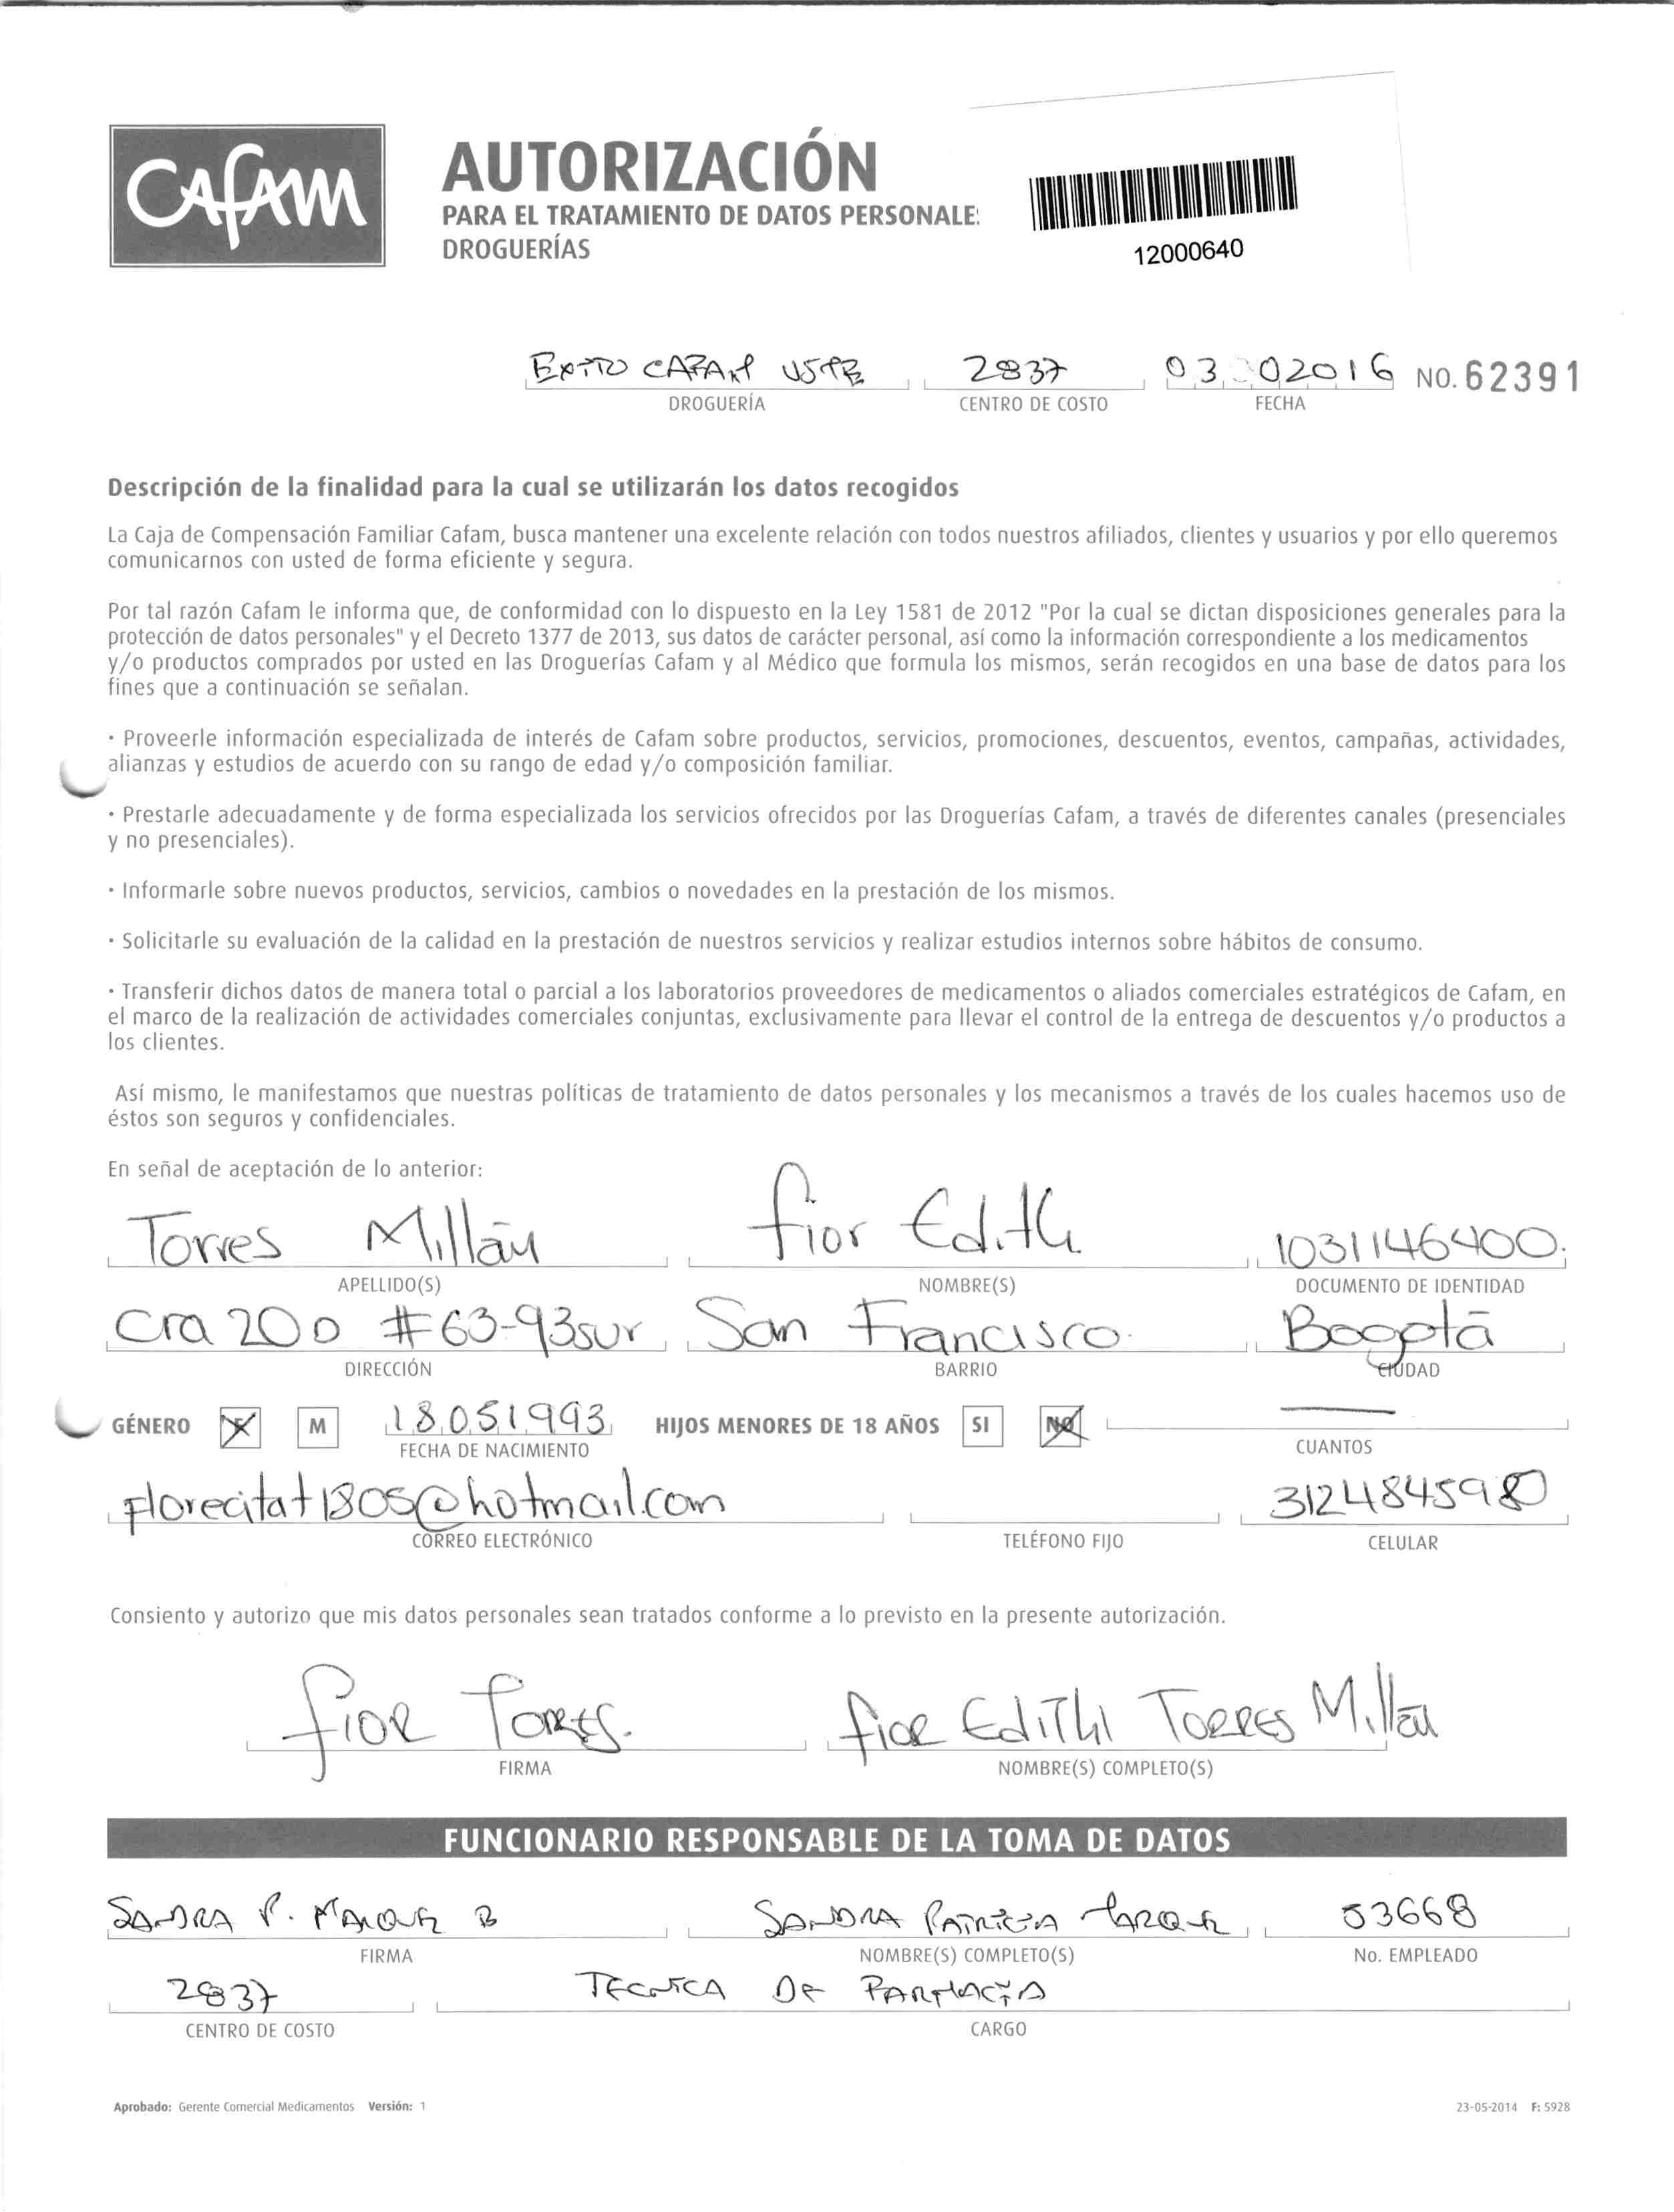 CAFAM
AUTORIZACIÓN
PARA EL TRATAMIENTO DE DATOS PERSONALE
DROGUERÍAS
12000640
EXITO CAFAM 2837 03 02016 NO. 62391
DROGUERÍA CENTRO DE COSTO FECHA
Descripción de la finalidad para la cual se utilizarán los datos recogidos
La Caja de Compensación Familiar Cafam, busca mantener una excelente relación con todos nuestros afiliados, clientes y usuarios y por ello queremos
comunicarnos con usted de forma eficiente y segura.
Por tal razón Cafam le informa que, de conformidad con lo dispuesto en la Ley 1581 de 2012 "Por la cual se dictan disposiciones generales para la
protección de datos personales" y el Decreto 1377 de 2013, sus datos de carácter personal, así como la información correspondiente a los medicamentos
y/o productos comprados por usted en las Droguerías Cafam y al Médico que formula los mismos, serán recogidos en una base de datos para los
fines que a continuación se señalan.
· Proveerle información especializada de interés de Cafam sobre productos, servicios, promociones, descuentos, eventos, campañas, actividades,
alianzas y estudios de acuerdo con su rango de edad y/o composición familiar.
· Prestarle adecuadamente y de forma especializada los servicios ofrecidos por las Droguerías Cafam, a través de diferentes canales (presenciales
y no presenciales).
· Informarle sobre nuevos productos, servicios, cambios o novedades en la prestación de los mismos.
· Solicitarle su evaluación de la calidad en la prestación de nuestros servicios y realizar estudios internos sobre hábitos de consumo.
· Transferir dichos datos de manera total o parcial a los laboratorios proveedores de medicamentos o aliados comerciales estratégicos de Cafam, en
el marco de la realización de actividades comerciales conjuntas, exclusivamente para llevar el control de la entrega de descuentos y/o productos a
los clientes.
Así mismo, le manifestamos que nuestras políticas de tratamiento de datos personales y los mecanismos a través de los cuales hacemos uso de
éstos son seguros y confidenciales.
En señal de aceptación de lo anterior:
Torres Millán flor Edith 1031146400.
APELLIDO(S) NOMBRE(S) DOCUMENTO DE IDENTIDAD
Cra 20 D # 63-93sur San Francisco. Bogotá
DIRECCIÓN BARRIO CIUDAD
GÉNERO F M 18051993 HIJOS MENORES DE 18 AÑOS SI NO
FECHA DE NACIMIENTO CUANTOS
florecitat1805@hotmail.com 3124845980
CORREO ELECTRÓNICO TELÉFONO FIJO CELULAR
Consiento y autorizo que mis datos personales sean tratados conforme a lo previsto en la presente autorización.
flor Torres. flor Edith Torres Millán
FIRMA NOMBRE(S) COMPLETO(S)
FUNCIONARIO RESPONSABLE DE LA TOMA DE DATOS
SANDRA P. MARQUEZ B SANDRA PATRICIA MARQUEZ 53668
FIRMA NOMBRE(S) COMPLETO(S) No. EMPLEADO
2837 TECNICA DE FARMACIA
CENTRO DE COSTO CARGO
Aprobado: Gerente Comercial Medicamentos Versión: 1 23-05-2014 F: 5928